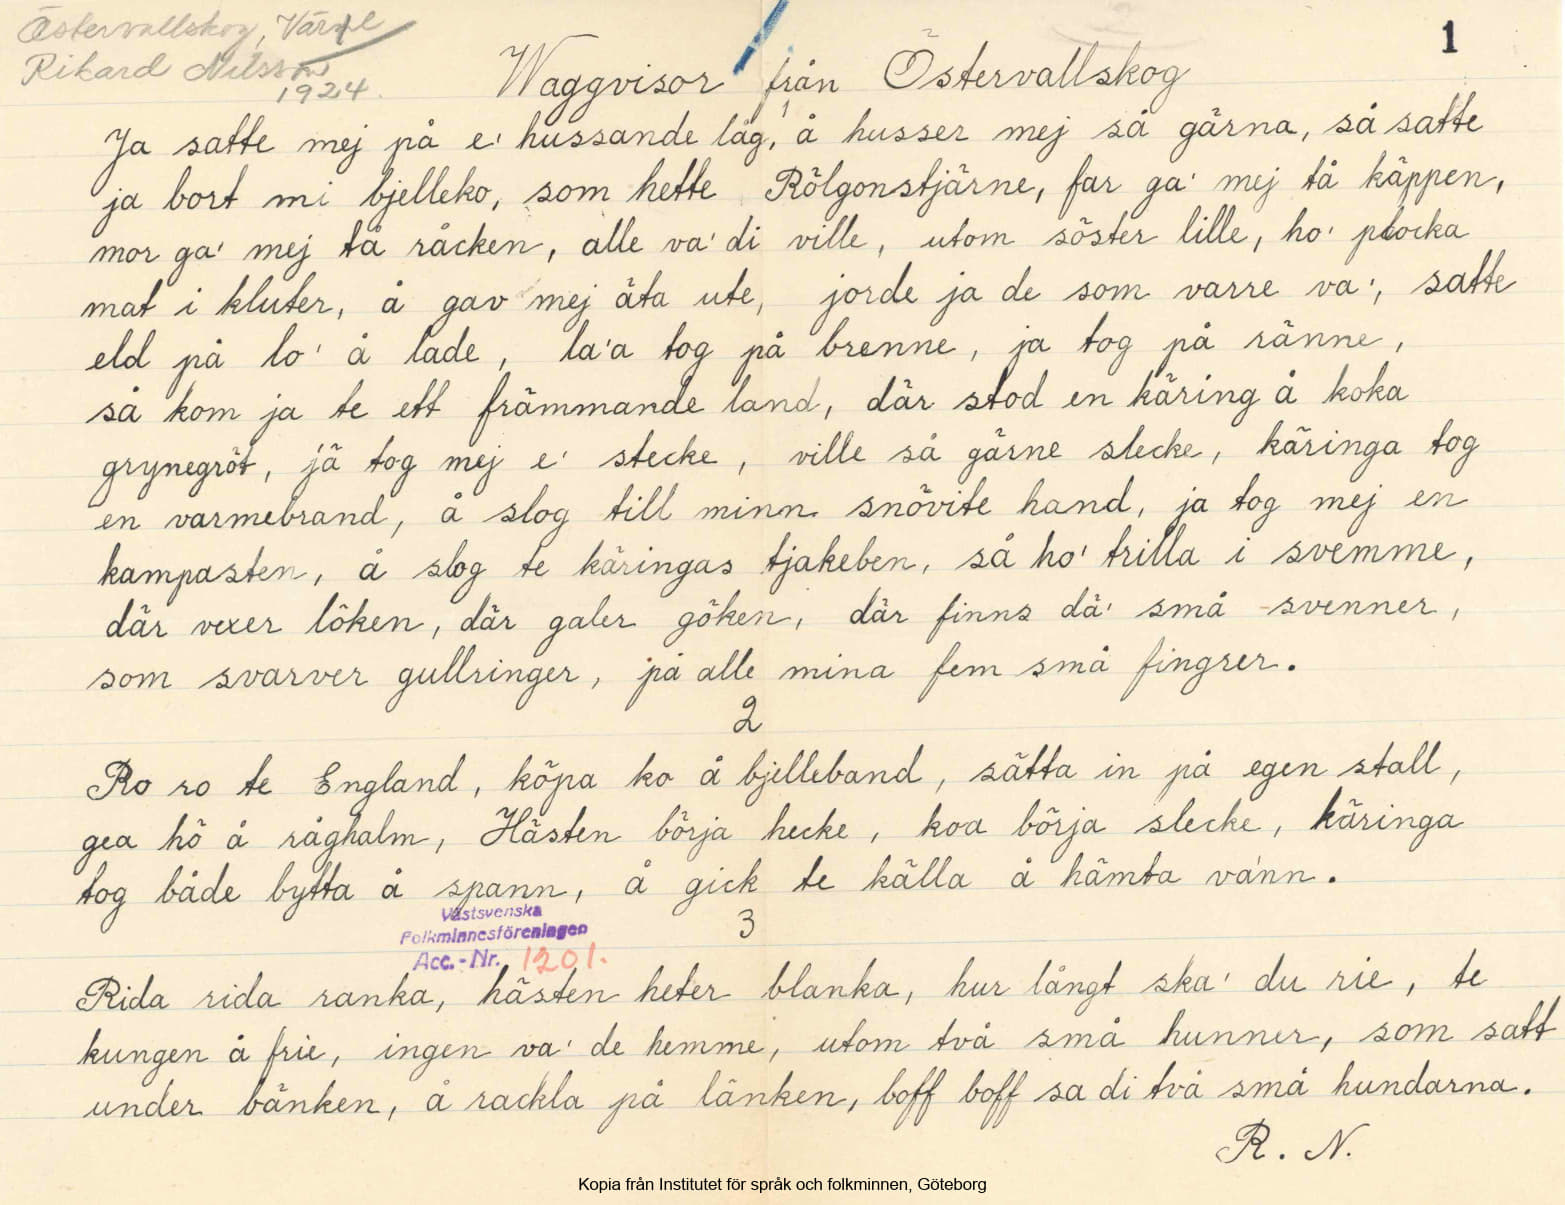 Östervallskog, Värml
Rikard Nilsson
1924
1
Waggvisor från Östervallskog
1
Ja satte mej på e' hussande låg, å husser mej så gärna, så satte
ja bort mi bjelleko, som hette Rölgonstjärne, far ga' mej tå käppen,
mor ga' mej tå råcken, alle va' di ville, utom söster lille, ho' plocka
mat i kluter, å gav mej äta ute, jorde ja de som varre va', satte
eld på lo' å lade, la'a tog på brenne, ja tog på ränne,
så kom ja te ett främmande land, där stod en käring å koka
grynegröt, jä tog mej e' stecke, ville så gärne slecke, käringa tog
en varmebrand, å slog till minn snövite hand, ja tog mej en
kampasten, å slog te käringas tjakeben, så ho' trilla i svemme,
där vexer löken, där galer göken, där finns dä' små svenner,
som svarver gullringer, på alle mina fem små fingrer.
2
Ro ro te England, köpa ko å bjelleband, sätta in på egen stall,
gea hö å råghalm, Hästen börja hecke, koa börja slecke, käringa
tog både bytta å spann, å gick te källa å hämta va'nn.
Västsvenska
Folkminnesföreningen
Acc.-Nr. 1201.
3
Rida rida ranka, hästen heter blanka, hur långt ska' du rie, te
kungen å frie, ingen va' de hemme, utom två små hunner, som satt
under bänken, å rackla på länken, boff boff sa di två små hundarna.
R. N.
Kopia från Institutet för språk och folkminnen, Göteborg